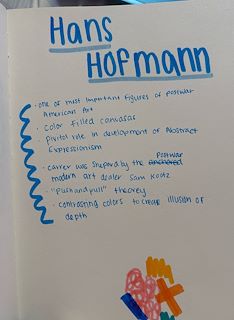 Hans
Hofmann
· one of most important figures of postwar
American Art
· color filled canvasas
· pivital role in development of Abstract
Expressionism
postwar
· carrer was shaped by the
modern art dealer Sam Kootz
· "push and pull" theorey
· contrasting colors to create illusion of
depth